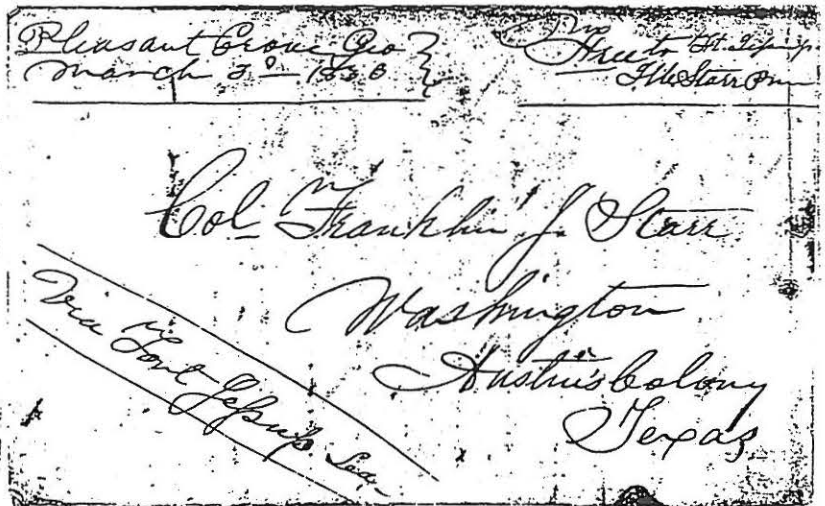 Pleasant Grove Geo
March 2d 1836
Free to Ft. Jessup
J. W. Starr Pm
Col Franklin J. Starr
Washington
Austin's Colony
Texas
Via Fort Jessup Loa